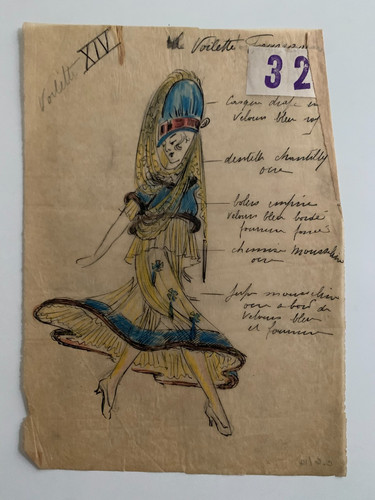 Voilette XIV
La Voilette
32
Casque drapé en
velours bleu roy
dentelle chantilly
ocre
bolero empire
velours bleu bordé
fourrure foncée
chemise mousseline
ocre
jupe mousseline
ocre a bord de
velours bleu
et fourrure